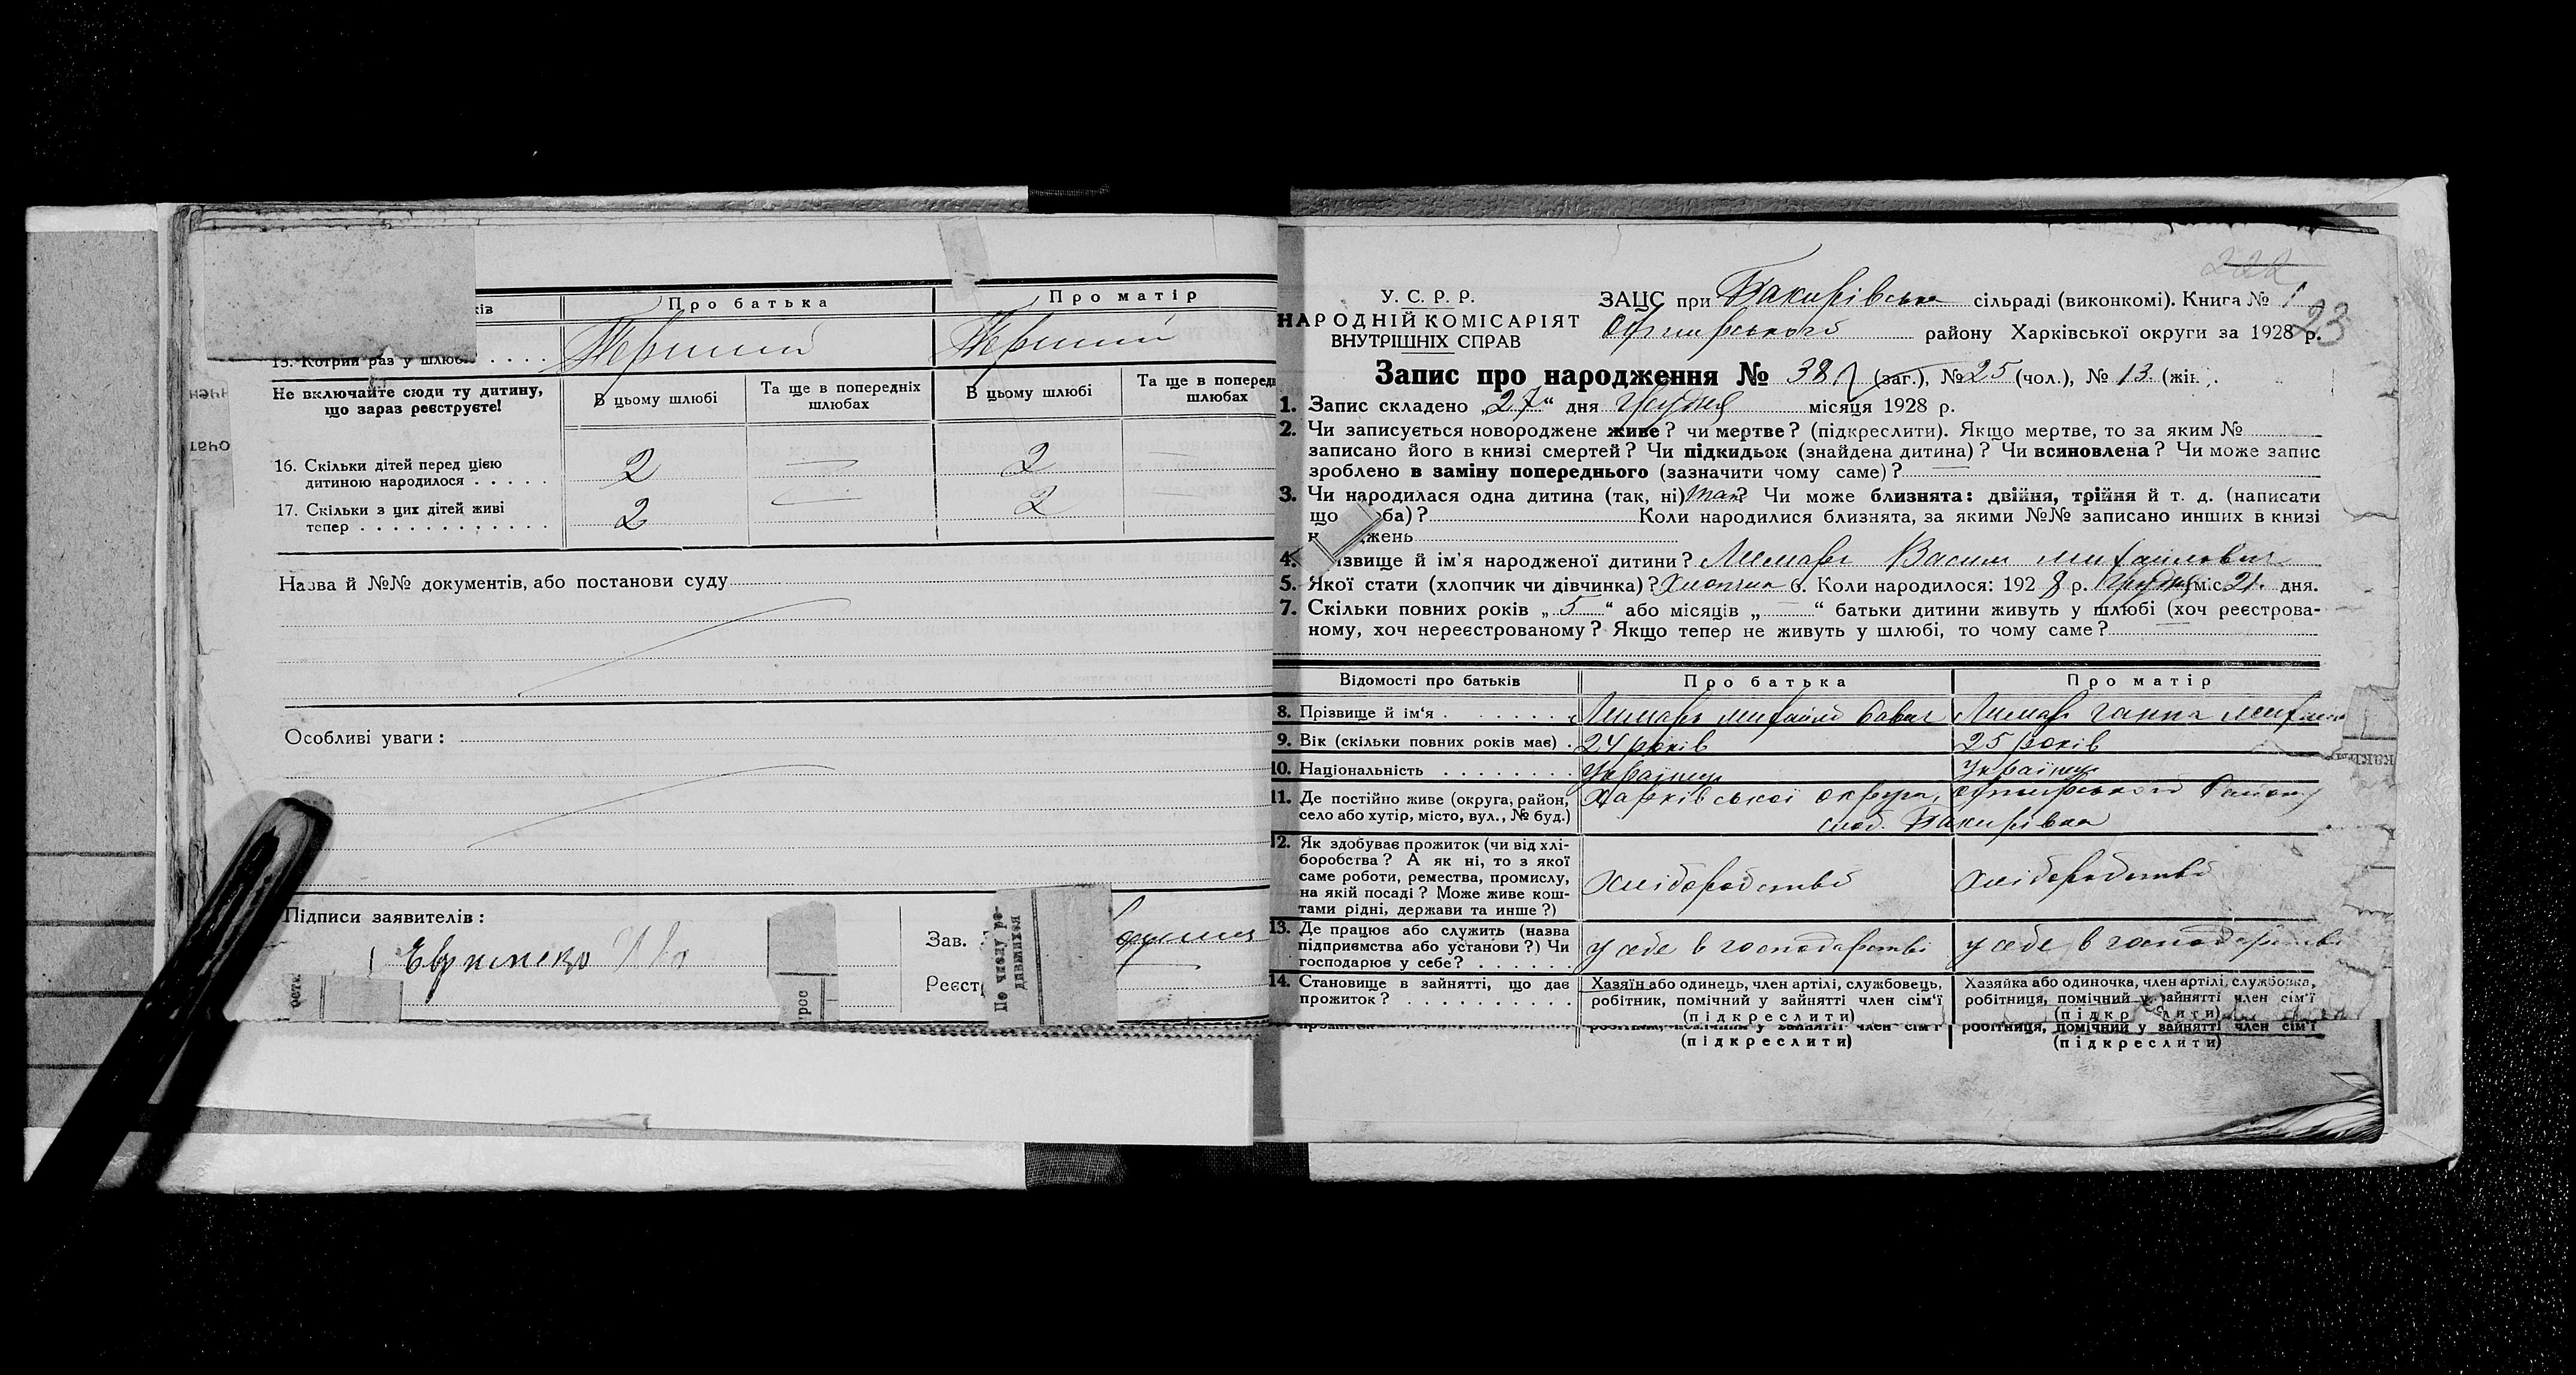 ків Про батька Про матір
15. Котрий раз у шлюбі . . . . Перший Перший
Не включайте сюди ту дитину, що зараз реєструєте!
В цьому шлюбі Та ще в попередніх шлюбах В цьому шлюбі Та ще в поперед шлюбах
16. Скільки дітей перед цією
дитиною народилося . . . . . 2 — 2 —
17. Скільки з цих дітей живі
тепер . . . . . . . . . . . . 2 — 2 —
Назва й №№ документів, або постанови суду
Особливі уваги:
Підписи заявителів:
Зав.
Реєст
По числу ро-
дившихся
222
У. С. Р. Р.
НАРОДНІЙ КОМІСАРІЯТ
ВНУТРІШНІХ СПРАВ
ЗАЦС при Бакирівська сільраді (виконкомі). Книга № 1
23
району Харківської округи за 1928 р.
Запис про народження № 38 (заг.), № 25 (чол.), № 13 (жін.).
1. Запис складено „27“ дня Грудня місяця 1928 р.
2. Чи записується новороджене живе? чи мертве? (підкреслити). Якщо мертве, то за яким №
записано його в книзі смертей? Чи підкидьок (знайдена дитина)? Чи всиновлена? Чи може запис
зроблено в заміну попереднього (зазначити чому саме)? —
3. Чи народилася одна дитина (так, ні) так? Чи може близнята: двійня, трійня й т. д. (написати
що ба)? Коли народилися близнята, за якими №№ записано инших в книзі
н жень
4. ізвище й ім'я народженої дитини? Лимарь Василь Михайлович
5. Якої стати (хлопчик чи дівчинка)? Хлопчик 6. Коли народилося: 1928 р. Грудня міс. 21. дня.
7. Скільки повних років „5“ або місяців „—“ батьки дитини живуть у шлюбі (хоч реєстрова-
ному, хоч нереєстрованому? Якщо тепер не живуть у шлюбі, то чому саме? —
Відомості про батьків Про батька Про матір
8. Прізвище й ім'я . . . . . . Лимарь Михайло Савич Лимарь Ганна
9. Вік (скільки повних років має) . 24 років 25 років
10. Національність . . . . . . . Українец Українец
11. Де постійно живе (округа, район,
село або хутір, місто, вул., № буд.)
Харківської округи, Району
слоб. Бакирівка
12. Як здобуває прожиток (чи від хлі-
боробства? А як ні, то з якої
саме роботи, ремества, промислу,
на якій посаді? Може живе кош-
тами рідні, держави та инше?)
Хліборобство Хліборобство
13. Де працює або служить (назва
підприємства або установи?) Чи
господарює у себе? . . . . . .
у себе в господарстві у себе в господарстві
14. Становище в зайнятті, що дає
прожиток? . . . . . . . . . .
Хазяїн або одинець, член артілі, службовець,
робітник, помічний у зайнятті член сім'ї
(підкреслити)
Хазяйка або одиночка, член артілі, службовка,
робітниця, помічний у зайнятті член сім'ї
(підкреслити)
робітниця, помічний у зайнятті член сім'ї
(підкреслити) (підкреслити)